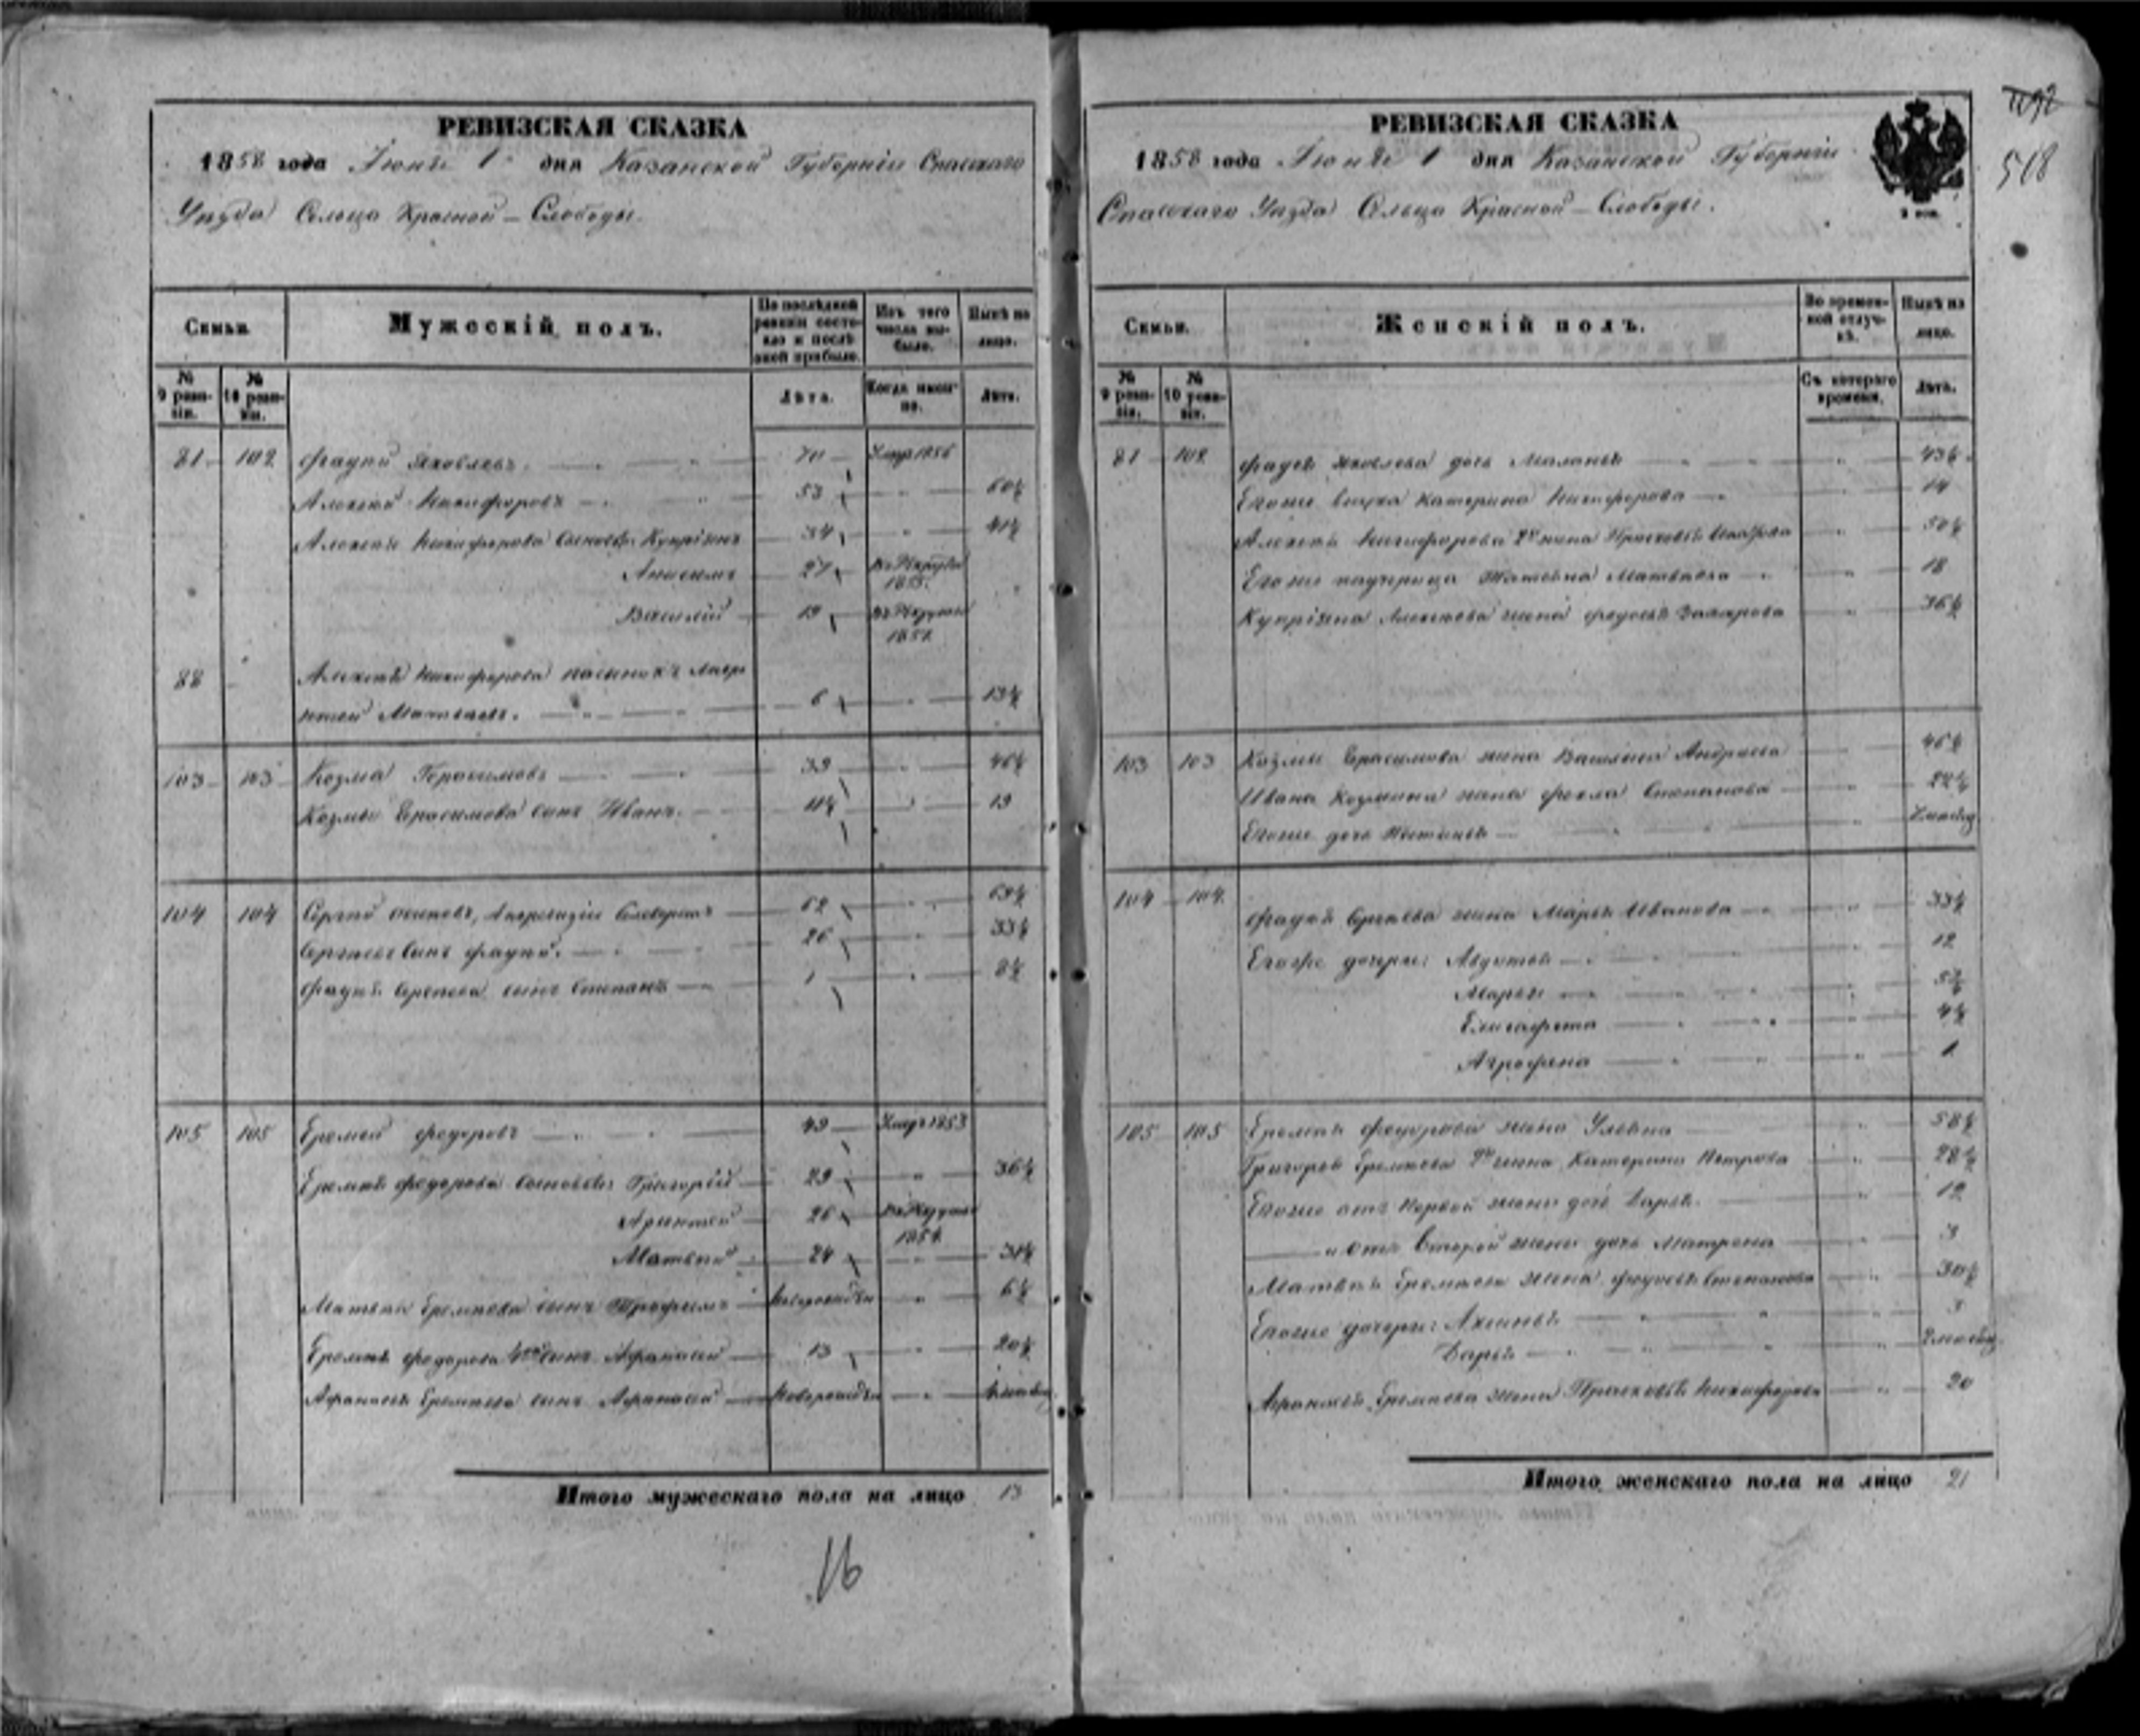 РЕВИЗСКАЯ СКАЗКА
1858 года Іюня 1 дня Казанской Губерніи Спасскаго
Уѣзда Сельца Красной - Слободы.
Семьи.
Мужескій полъ.
По послѣдней ревизіи состояло и послѣ оной прибыло.
Изъ того числа выбыло.
Нынѣ на лицо.
№ 9 ревизіи.
№ 10 ревизіи.
Лѣта.
Когда именно.
Лѣта.
81 102 Фадѣй Яковлевъ. 70 Умер 1856
Алексѣй Никифоровъ 53 60½
Алексѣя Никифорова сыновья: Купріянъ 34 41½
Анисимъ 27 въ Рекруты 1855.
Василій 19 въ Рекруты
88 Алексѣя Никифорова пасынокъ Лавре
нтей Матвѣевъ. 6 13½
103 103 Козма Герасимовъ 39 46½
Козмы Герасимова сынъ Иванъ. 11½ 19
104 104 Сергѣй Осиповъ, 62 69½
Сергѣевъ сынъ Фадѣй. 26 33½
Фадѣя Сергѣева сынъ Степанъ 1 8½
105 105 Еремей Федоровъ 49 Умеръ 1853
Еремѣя Федорова сыновья: Григорій 29 36½
26 въ Рекруты 1854
Матвѣй 24 31½
Матвѣя Еремѣева сынъ Трофимъ новорожден 6½
Еремѣя Федорова 4й сынъ Афанасій 13 20½
Афанасья Еремѣева сынъ Афанасій новорожден
Итого мужескаго пола на лицо 13
16
РЕВИЗСКАЯ СКАЗКА
1858 года Іюня 1 дня Казанской Губерніи
Спасскаго Уѣзда Сельца Красной - Слободы.
518
Семьи.
Женскій полъ.
Во временной отлучкѣ.
Нынѣ на лицо.
№ 9 ревизіи.
№ 10 ревизіи.
Съ котораго времени.
Лѣта.
81 102 Фадѣя Яковлева дочь Маланья 43½
Егоже внучка Катерина Никифорова 14
Алексѣя Никифорова 2я жена Прасковья 50½
Егоже падчерица Татьяна Матвѣева 18
Купріяна Алексѣева жена Федосья Захарова 36½
103 103 Козмы Герасимова жена Василиса Андреева 46½
Ивана Козмина жена Фекла Степанова 22½
Егоже дочь
104 104 Фадѣя Сергѣева жена Марья Иванова 33½
Егоже дочери: Авдотья 12
Марья
Елисафета 4½
Агрофена 1
105 105 Еремѣя Федорова жена Ульяна 58½
Григорья Еремѣева 2я жена Катерина Петрова 28½
Егоже отъ первой жены дочь Дарья. 12
и отъ второй жены дочь Матрена 3
Матвѣя Еремѣева жена Федосья Степанова 30½
Егоже дочери: Аксинья 3
Дарья
Афанасья Еремѣева жена Прасковья Никифорова 20
Итого женскаго пола на лицо 21